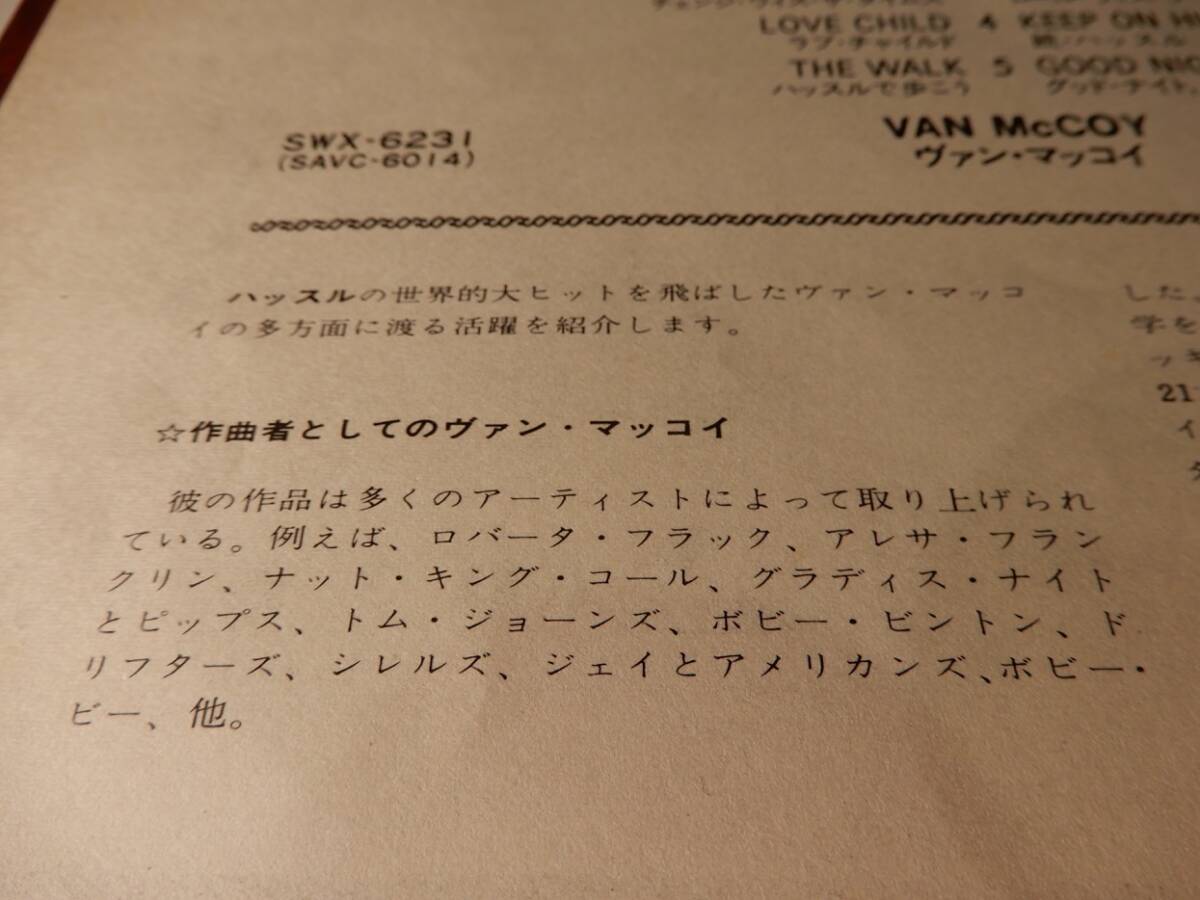 チェンジ・ウィズ・ザ・タイムス
LOVE CHILD 4 KEEP ON
ラブ・チャイルド 続・ハッスル
THE WALK 5 GOOD
ハッスルで歩こう グッド・ナイト、
SWX-6231
(SAVC-6014)
VAN McCOY
ヴァン・マッコイ
ハッスルの世界的大ヒットを飛ばしたヴァン・マッコ
イの多方面に渡る活躍を紹介します。
☆作曲者としてのヴァン・マッコイ
彼の作品は多くのアーティストによって取り上げられ
ている。例えば、ロバータ・フラック、アレサ・フラン
クリン、ナット・キング・コール、グラディス・ナイト
とピップス、トム・ジョーンズ、ボビー・ビントン、ド
リフターズ、シレルズ、ジェイとアメリカンズ、ボビー・
ビー、他。
した
学を
ッキ
21
イ